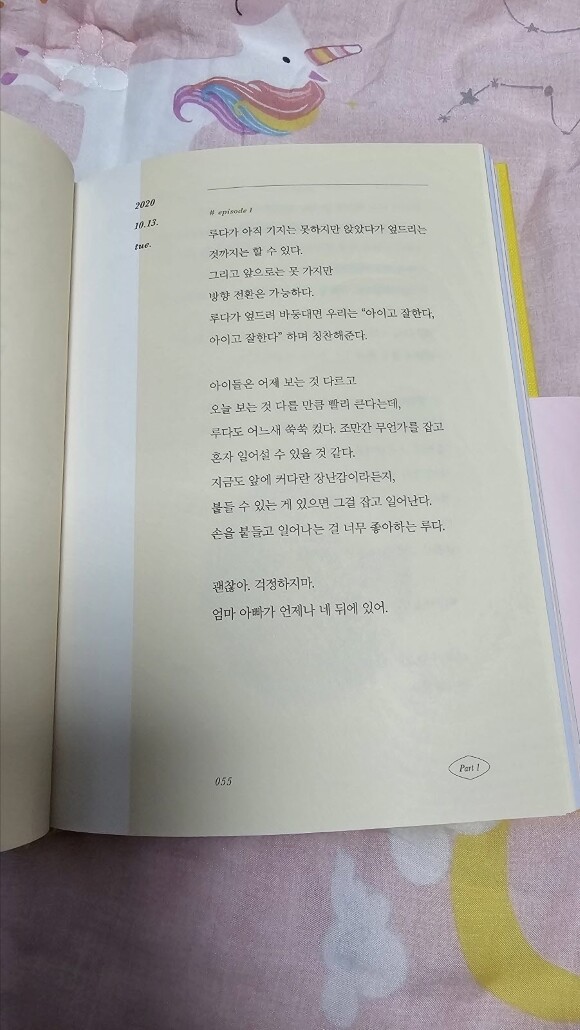 2020
10.13.
tue.
# episode 1
루다가 아직 기지는 못하지만 앉았다가 엎드리는
것까지는 할 수 있다.
그리고 앞으로는 못 가지만
방향 전환은 가능하다.
루다가 엎드려 바둥대면 우리는 “아이고 잘한다,
아이고 잘한다” 하며 칭찬해준다.
아이들은 어제 보는 것 다르고
오늘 보는 것 다를 만큼 빨리 큰다는데,
루다도 어느새 쑥쑥 컸다. 조만간 무언가를 잡고
혼자 일어설 수 있을 것 같다.
지금도 앞에 커다란 장난감이라든지,
붙들 수 있는 게 있으면 그걸 잡고 일어난다.
손을 붙들고 일어나는 걸 너무 좋아하는 루다.
괜찮아. 걱정하지마.
엄마 아빠가 언제나 네 뒤에 있어.
055
Part 1